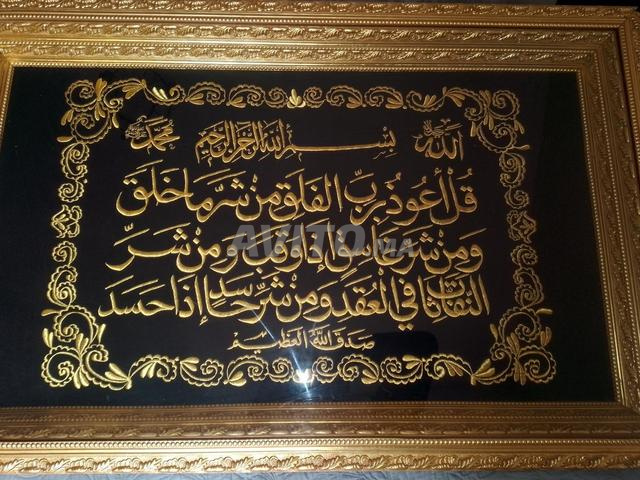 الله جل جلاله بسم الله الرحمن الرحيم محمد
قل أعوذ برب الفلق من شر ما خلق
ومن شر غاسق إذا وقب ومن شر
النفاثات في العقد ومن شر حاسد إذا حسد
صدق الله العظيم
AVITO.MA